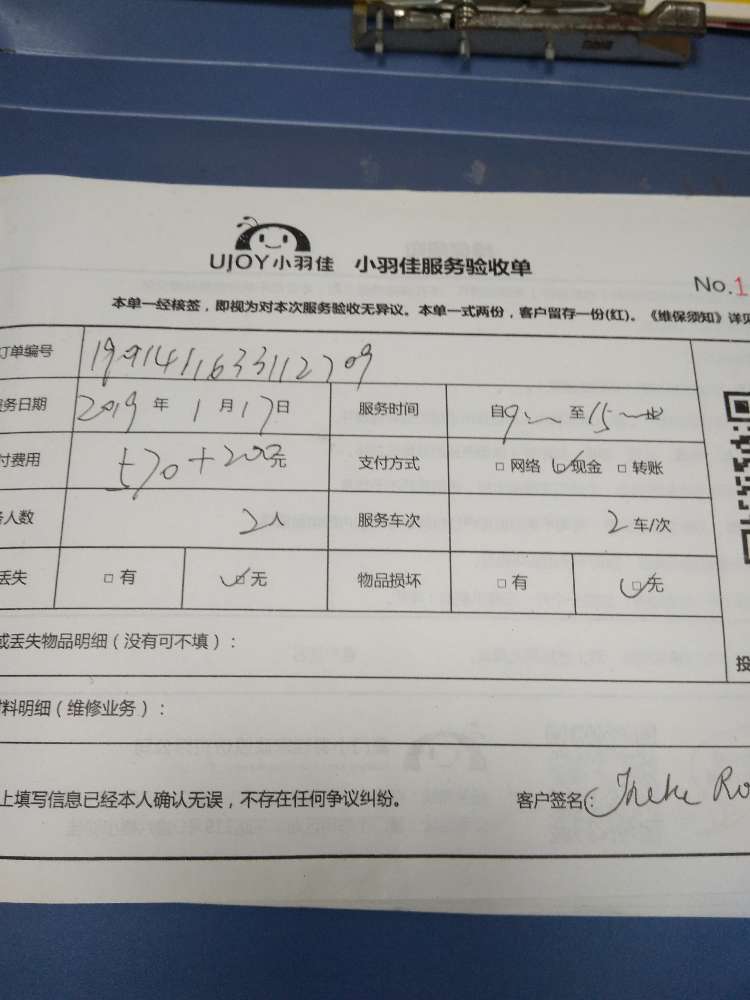 UJOY小羽佳 小羽佳服务验收单
No.1
本单一经核签，即视为对本次服务验收无异议。本单一式两份，客户留存一份(红)。《维保须知》详见
订单编号
服务日期 2019 年 1 月 17 日 服务时间 自9 至15 止
付费用 570+200元 支付方式 □ 网络 □ 现金 □ 转账
务人数 2人 服务车次 2 车/次
丢失 □ 有 □ 无 物品损坏 □ 有 □ 无
或丢失物品明细（没有可不填）：
材料明细（维修业务）：
投
上填写信息已经本人确认无误，不存在任何争议纠纷。 客户签名：